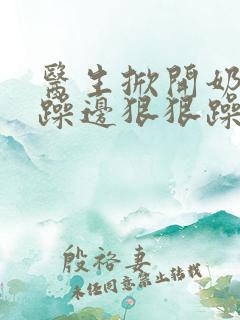 醫生掀開奶
躁邊狠狠躁
殷袼妻
未任同意禁止转载